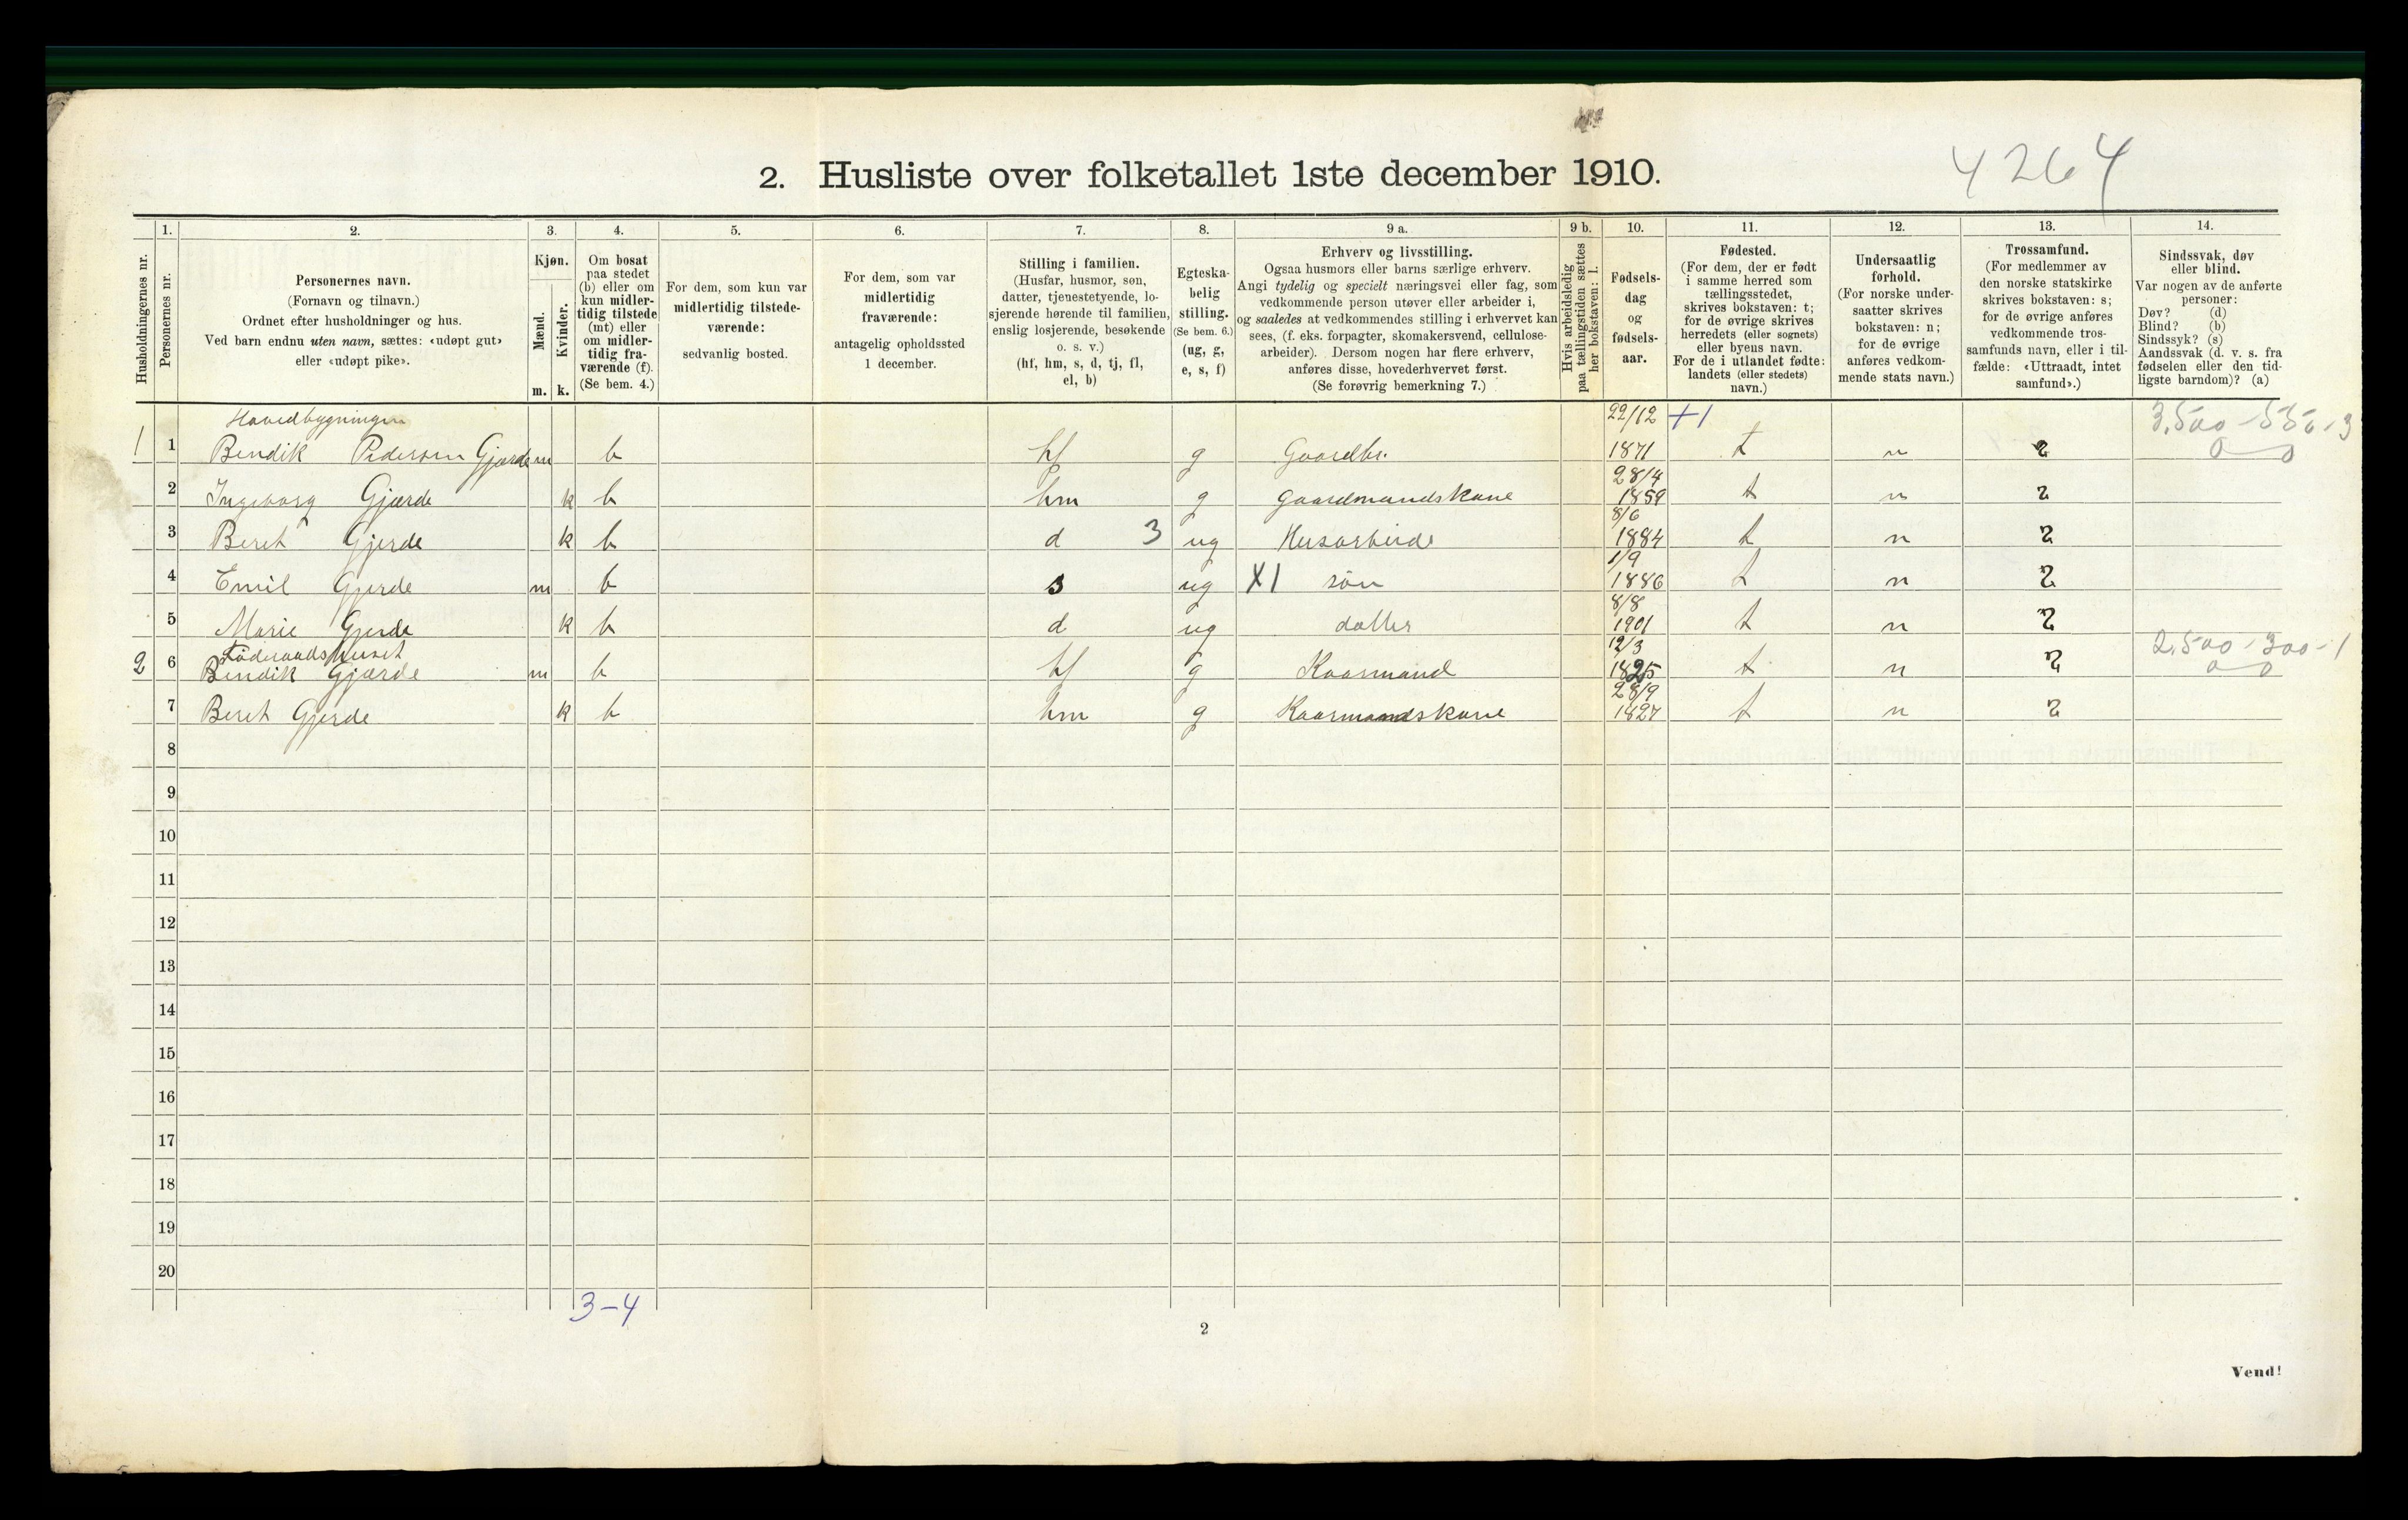 4264
2. Husliste over folketallet 1ste december 1910.
Husholdningernes nr.
1. Personernes nr.
2. Personernes navn.
(Fornavn og tilnavn.)
Ordnet efter husholdninger og hus.
Ved barn endnu uten navn, sættes: «udøpt gut»
eller «udøpt pike».
3. Kjøn.
Mænd. m.
Kvinder. k.
4. Om bosat
paa stedet
(b) eller om
kun midler-
tidig tilstede
(mt) eller
om midler-
tidig fra-
værende (f).
(Se bem. 4.)
5. For dem, som kun var
midlertidig tilstede-
værende:
sedvanlig bosted.
6. For dem, som var
midlertidig
fraværende:
antagelig opholdssted
1 december.
7. Stilling i familien.
(Husfar, husmor, søn,
datter, tjenestetyende, lo-
sjerende hørende til familien,
enslig losjerende, besøkende
o. s. v.)
(hf, hm, s, d, tj, fl,
el, b)
8. Egteska-
belig
stilling.
(Se bem. 6.)
(ug, g,
e, s, f)
9 a. Erhverv og livsstilling.
Ogsaa husmors eller barns særlige erhverv.
Angi tydelig og specielt næringsvei eller fag, som
vedkommende person utøver eller arbeider i,
og saaledes at vedkommendes stilling i erhvervet kan
sees, (f. eks. forpagter, skomakersvend, cellulose-
arbeider). Dersom nogen har flere erhverv,
anføres disse, hovederhvervet først.
(Se forøvrig bemerkning 7.)
9 b. Hvis arbeidsledig
paa tællingstiden sættes
her bokstaven: l.
10. Fødsels-
dag
og
fødsels-
aar.
11. Fødested.
(For dem, der er født
i samme herred som
tællingsstedet,
skrives bokstaven: t;
for de øvrige skrives
herredets (eller sognets)
eller byens navn.
For de i utlandet fødte:
landets (eller stedets)
navn.)
12. Undersaatlig
forhold.
(For norske under-
saatter skrives
bokstaven: n;
for de øvrige
anføres vedkom-
mende stats navn.)
13. Trossamfund.
(For medlemmer av
den norske statskirke
skrives bokstaven: s;
for de øvrige anføres
vedkommende tros-
samfunds navn, eller i til-
fælde: «Uttraadt, intet
samfund».)
14. Sindssvak, døv
eller blind.
Var nogen av de anførte
personer:
Døv? (d)
Blind? (b)
Sindssyk? (s)
Aandssvak (d. v. s. fra
fødselen eller den tid-
ligste barndom)? (a)
Hovedbygningen 22/12 +1 3.500-550-3
1 1 Bendik Pedersen Gjærde m b hf g Gaardbr. 1871 t n s 0 0
2 Ingeborg Gjærde k b hm g gaardmandskone 28/4 1859 t n s
3 Beret Gjerde k b d 3 ug Husarbeide 8/6 1884 t n s
4 Emil Gjerde m b s ug X1 søn 1/9 1886 t n s
5 Marie Gjerde k b d ug datter 8/8 1901 t n s
Föderaadshuset 2.500-300-1
2 6 Bendik Gjærde m b hf g Kaarmand 12/3 1825 t n s 0 0
7 Beret Gjerde k b hm g Kaarmandskone 28/9 1827 t n s
8
9
10
11
12
13
14
15
16
17
18
19
20
3-4
2
Vend!